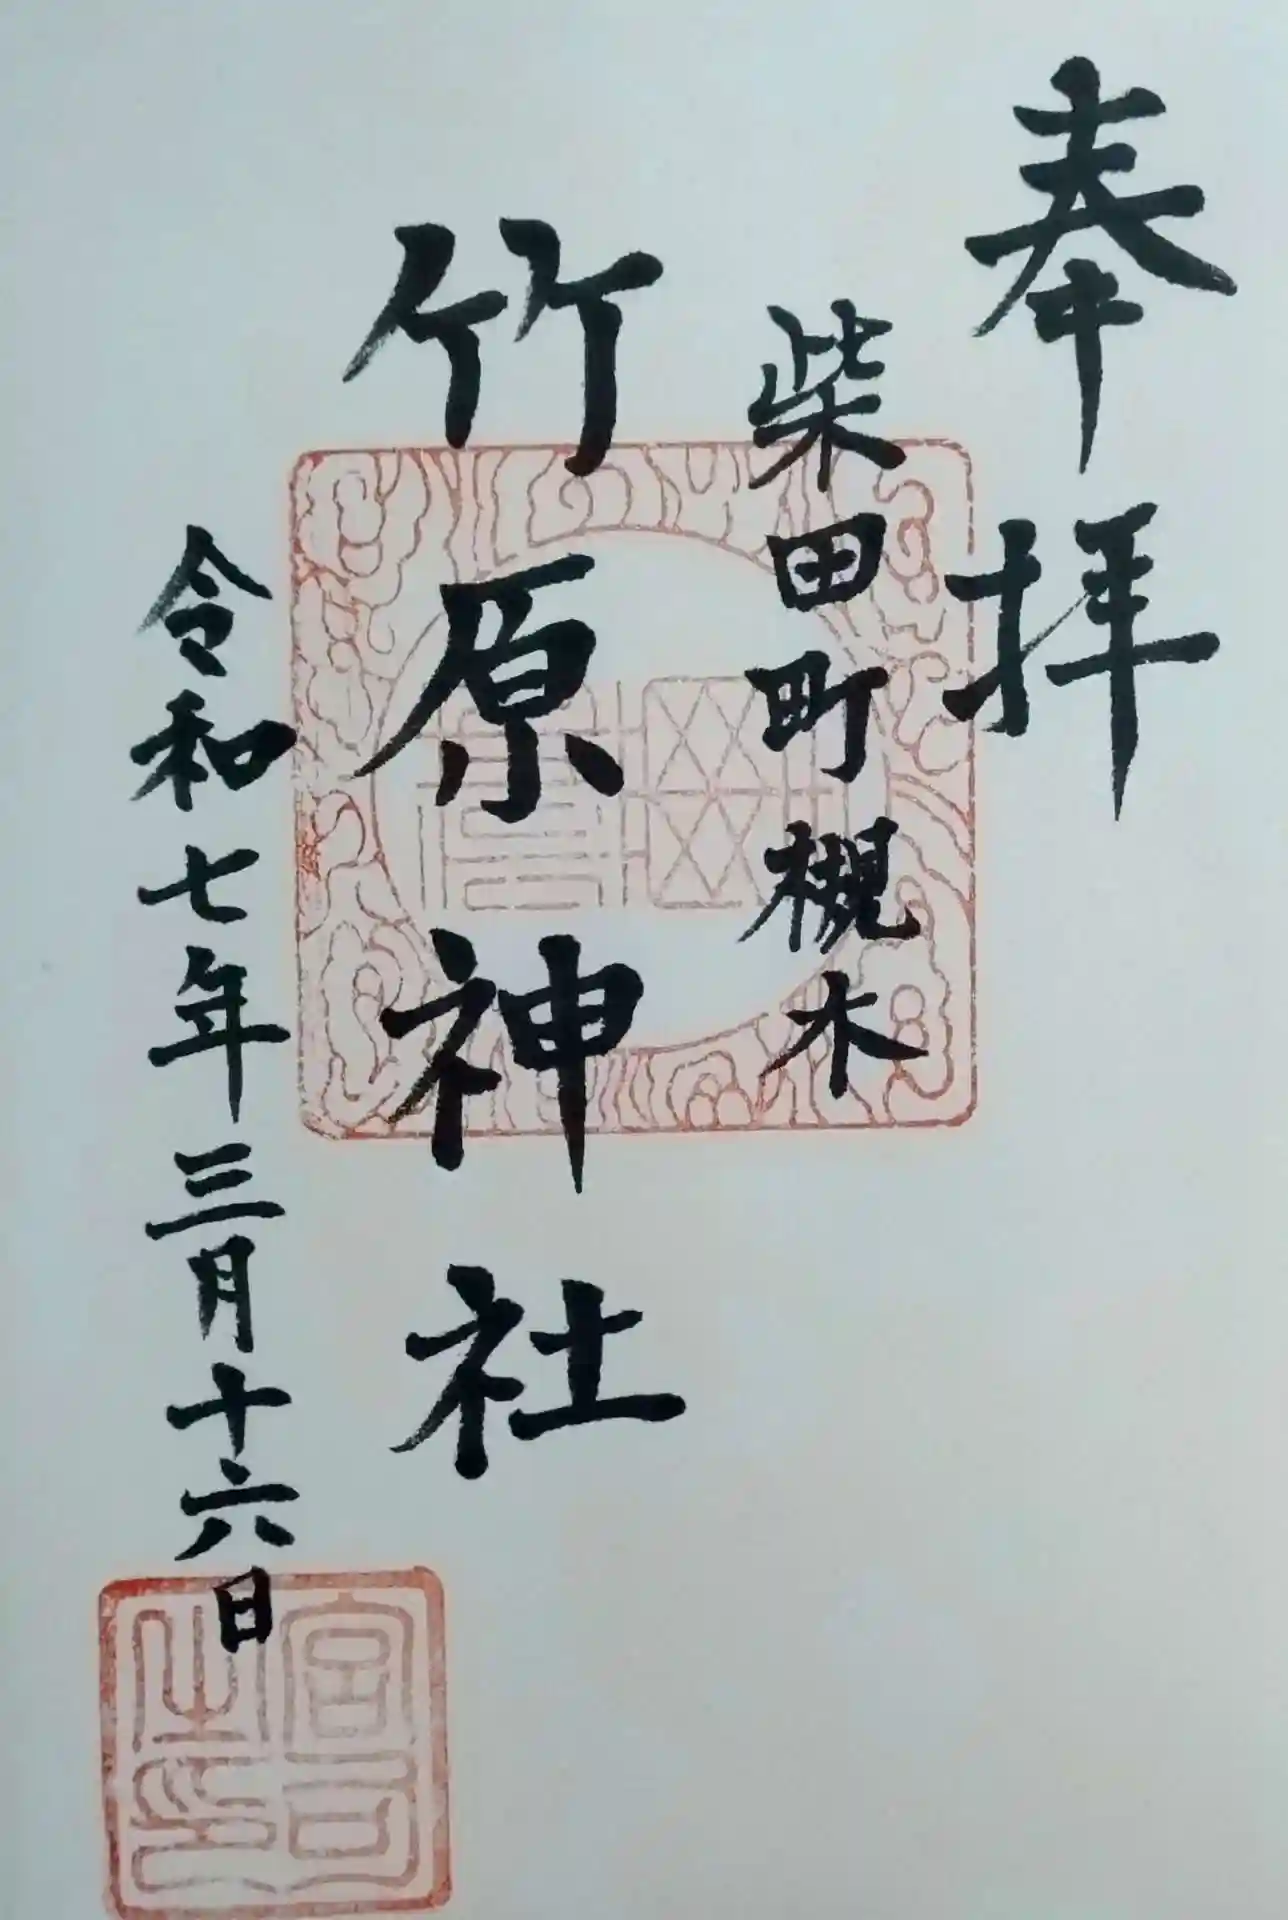 奉拝
柴田町槻木
竹原神社
令和七年三月十六日
宮司之印